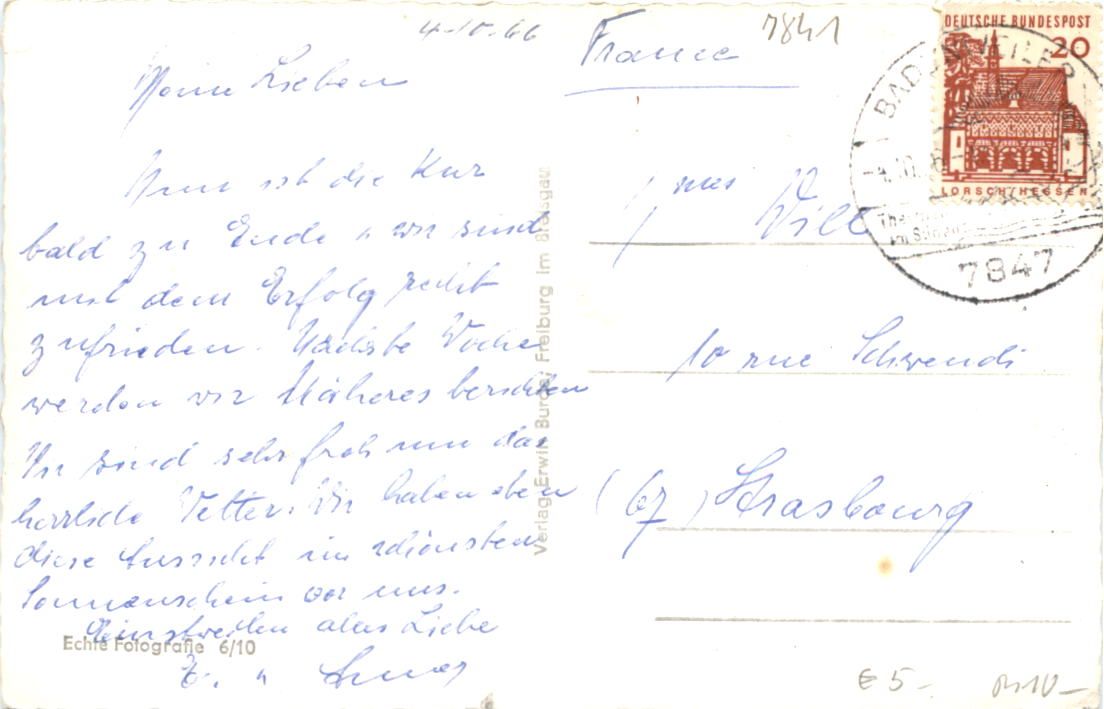 4-10-66
France
7841
DEUTSCHE BUNDESPOST
20
LORSCH/HESSEN
BADENWEILER
7847
Meine Lieben
Nun ist die Kur
bald zu Ende u wir sind
mit dem Erfolg recht
zufrieden. Nächste Woche
werden wir Näheres berichten
Wir sind sehr froh um das
herrliche Wetter. Wir haben eben
diese Aussicht im schönsten
Sonnenschein vor uns.
Einstweilen alles Liebe
E. u
Will
10 rue Schwendi
(67) Strasbourg
Verlag Erwin Burda, Freiburg im Breisgau
Echte Fotografie 6/10
€ 5-